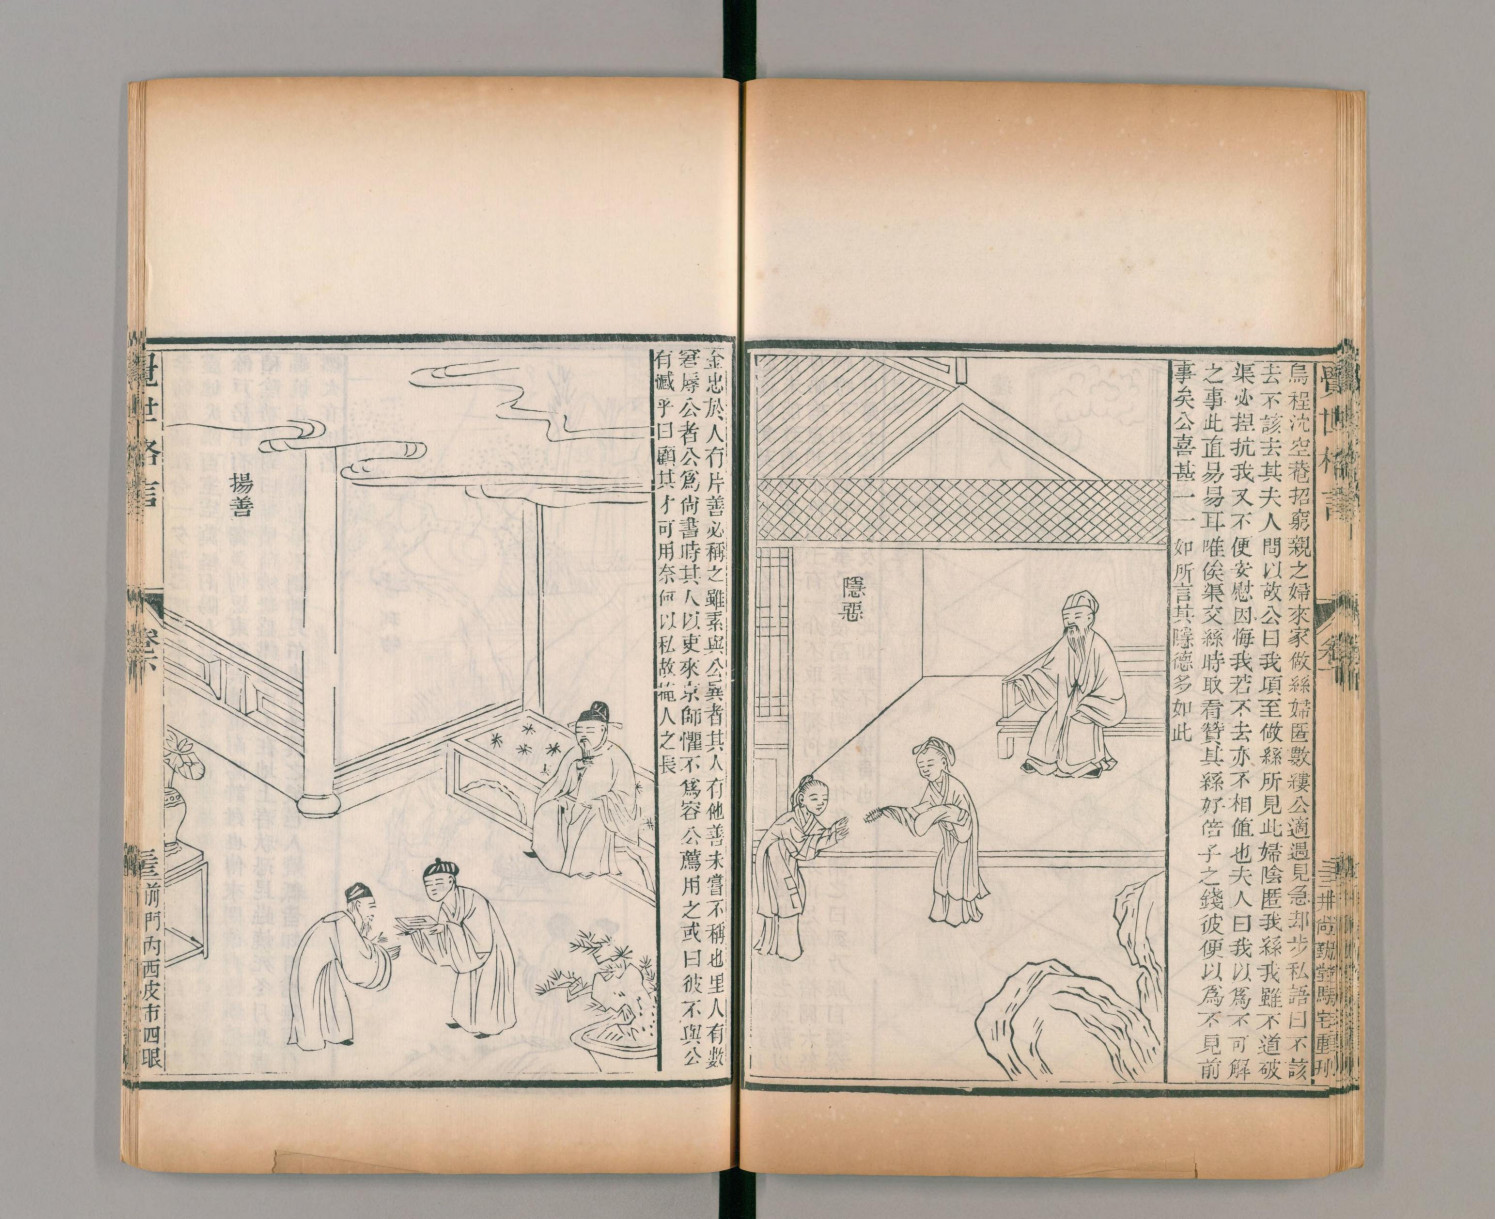 烏程沈空菴招窮親之婦來家做絲婦匿數縷公適遇見急却步私語曰不該
去不該去其夫人問以故公曰我項至做絲所見此婦陰匿我絲我雖不道破
渠必揑抗我又不便安慰因悔我若不去亦不相值也夫人曰我以爲不可解
之事此直易易耳唯俟渠交絲時取看贊其絲好倍子之錢彼便以爲不見前
事矣公喜甚一一如所言其隱德多如此
隱惡
金忠於人有片善必稱之雖素與公異者其人有他善未嘗不稱也里人有數
窘辱公者公爲尚書時其人以吏來京師懼不爲容公薦用之或曰彼不與公
有憾乎曰顧其才可用奈何以私故掩人之長
揚善
覺世格言
卷六
前門內西皮市四眼
井尚甄堂馬宅重刊